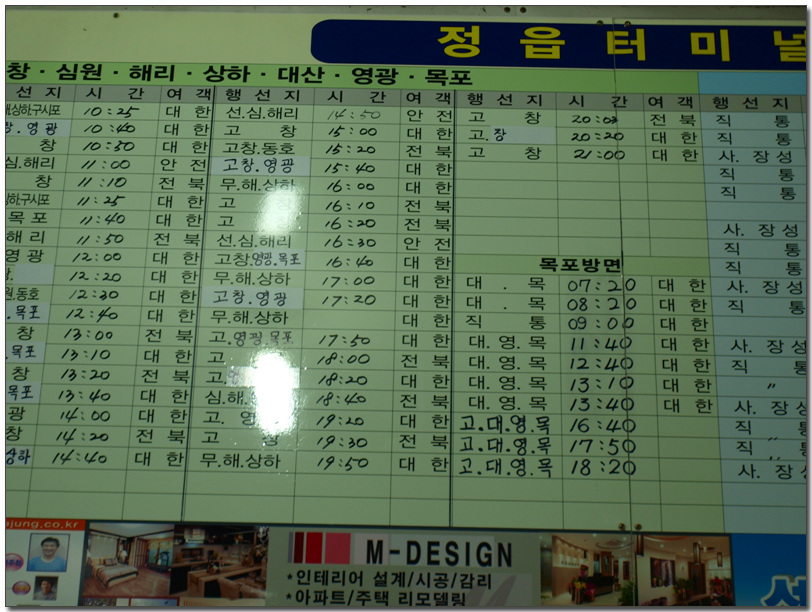 정읍터미널
창·심원·해리·상하·대산·영광·목포
선 지 시 간 여 객 행 선 지 시 간 여 객 행 선 지 시 간 여 객 행 선 지
상하.구시포 10:25 대한 선.심.해리 14:50 안전 고 창 20:03 전북 직 통
창.영광 10:40 대한 고 창 15:00 대한 고.창 20:20 대한 직 통
창 10:50 대한 고창.동호 15:20 전북 고 창 21:00 대한 사. 장성
심.해리 11:00 안전 고창.영광 15:40 대한 직 통
창 11:10 전북 무.해.상하 16:00 대한 직 통
하.구시포 11:25 대한 고 16:10 전북
목포 11:40 대한 고 16:20 전북 사. 장성
해리 11:50 전북 선.심.해리 16:30 안전 직 통
영광 12:00 대한 고창.영광.목포 16:40 대한 목포방면 직 통
12:20 대한 무.해.상하 17:00 대한 대 . 목 07:20 대한 사. 장성
원.동호 12:30 대한 고창.영광 17:20 대한 대 . 목 08:20 대한 직 통
.목포 12:40 대한 무.해.상하 대한 직 통 09:00 대한
창 13:00 전북 고.영광.목포 17:50 대한 대.영.목 11:40 대한 사. 장성
.목포 13:10 대한 고 18:00 전북 대.영.목 12:40 대한 직 통
창 13:20 전북 고. 18:20 대한 대.영.목 13:10 대한 〃
목포 13:40 대한 심.해. 18:40 전북 대.영.목 13:40 대한 사. 장성
광 14:00 대한 고. 영광 19:20 대한 고.대.영.목 16:40 직 통
창 14:20 전북 고 창 19:30 전북 고.대.영.목 17:50 직 통
상하 14:40 대한 무.해.상하 19:50 대한 고.대.영.목 18:20 사. 장성
jung.co.kr
M-DESIGN
*인테리어 설계/시공/감리
*아파트/주택 리모델링